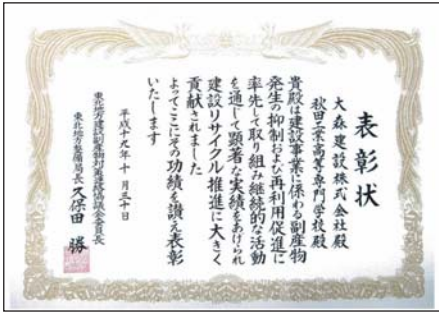 表彰状
大森建設株式会社殿
秋田工業高等専門学校殿
貴殿は建設事業に係わる副産物
発生の抑制及び再利用促進に
率先して取り組み継続的な活動
を通して顕著な実績をあげられ
建設リサイクル推進に大きく
貢献されました
よってここにその功績を讃え表彰
いたします
平成十九年十月三十日
東北地方建設副産物対策連絡協議会委員長
東北地方整備局長 久保田 勝